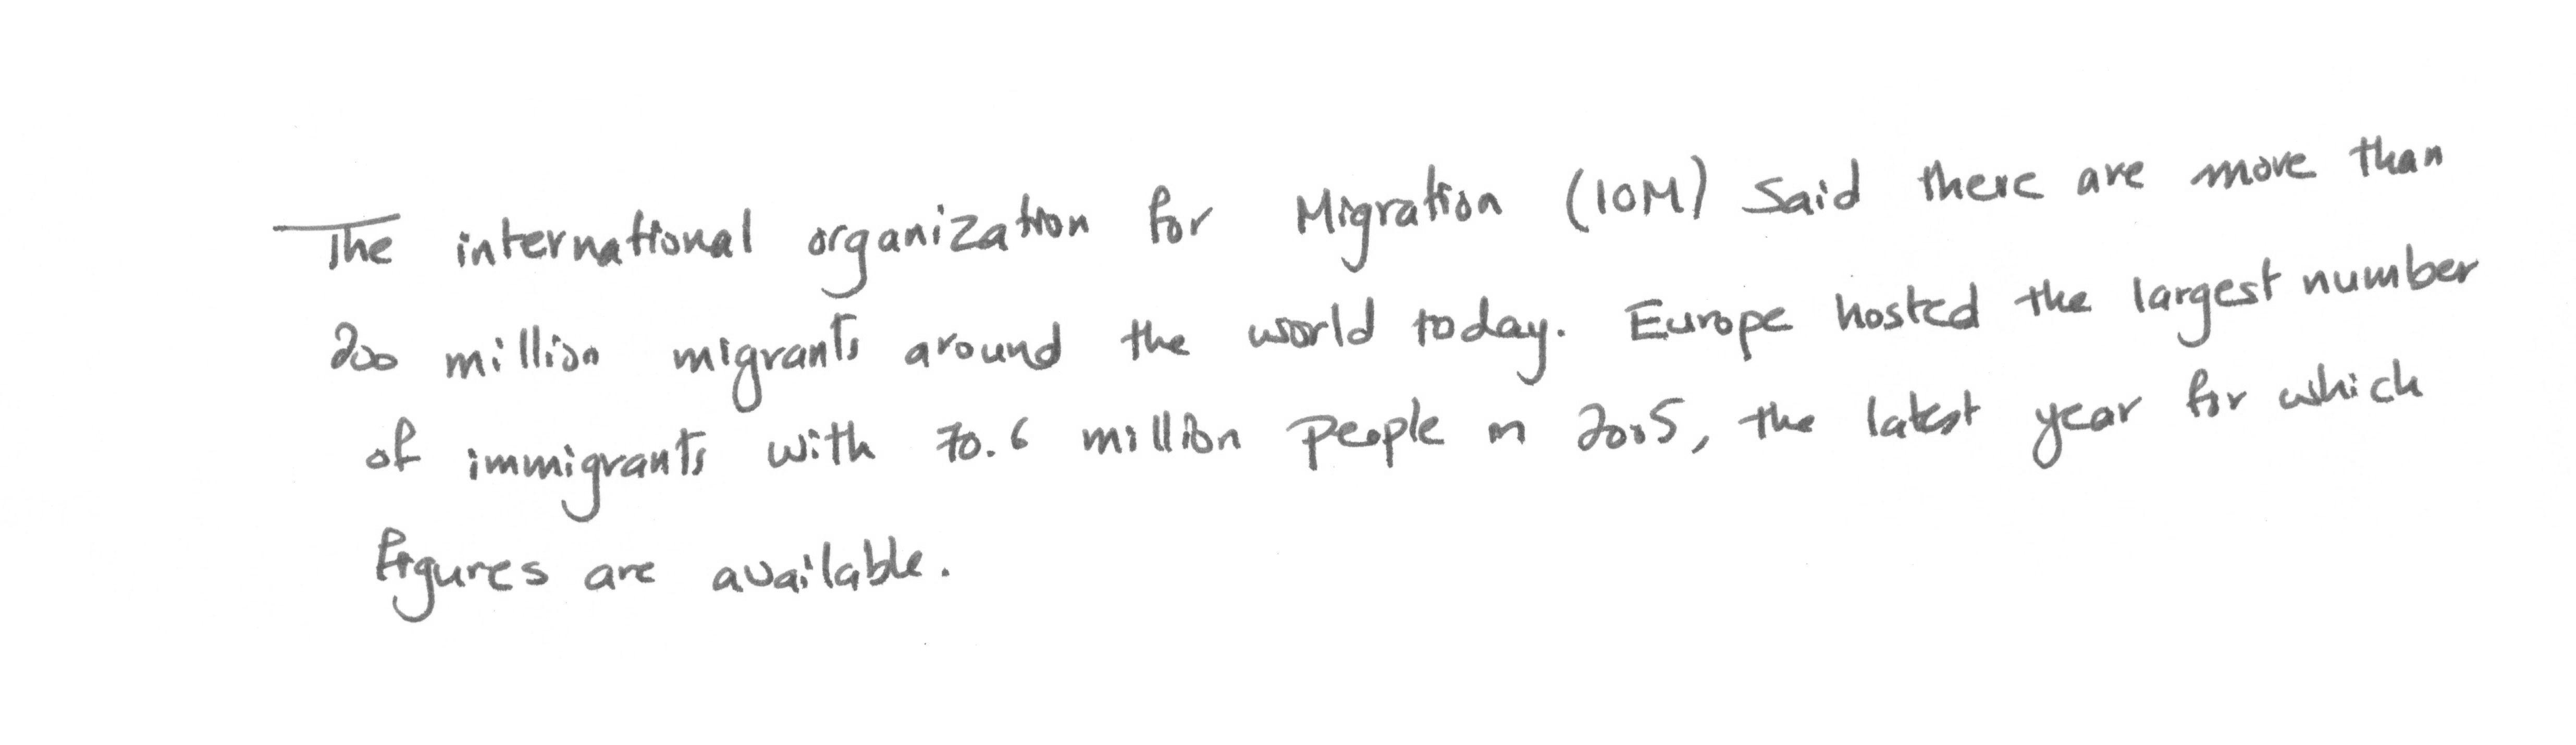 The international organization for Migration (IOM) said there are more than
200 million migrants around the world today. Europe hosted the largest number
of immigrants with 70.6 million people in 2005, the latest year for which
figures are available.